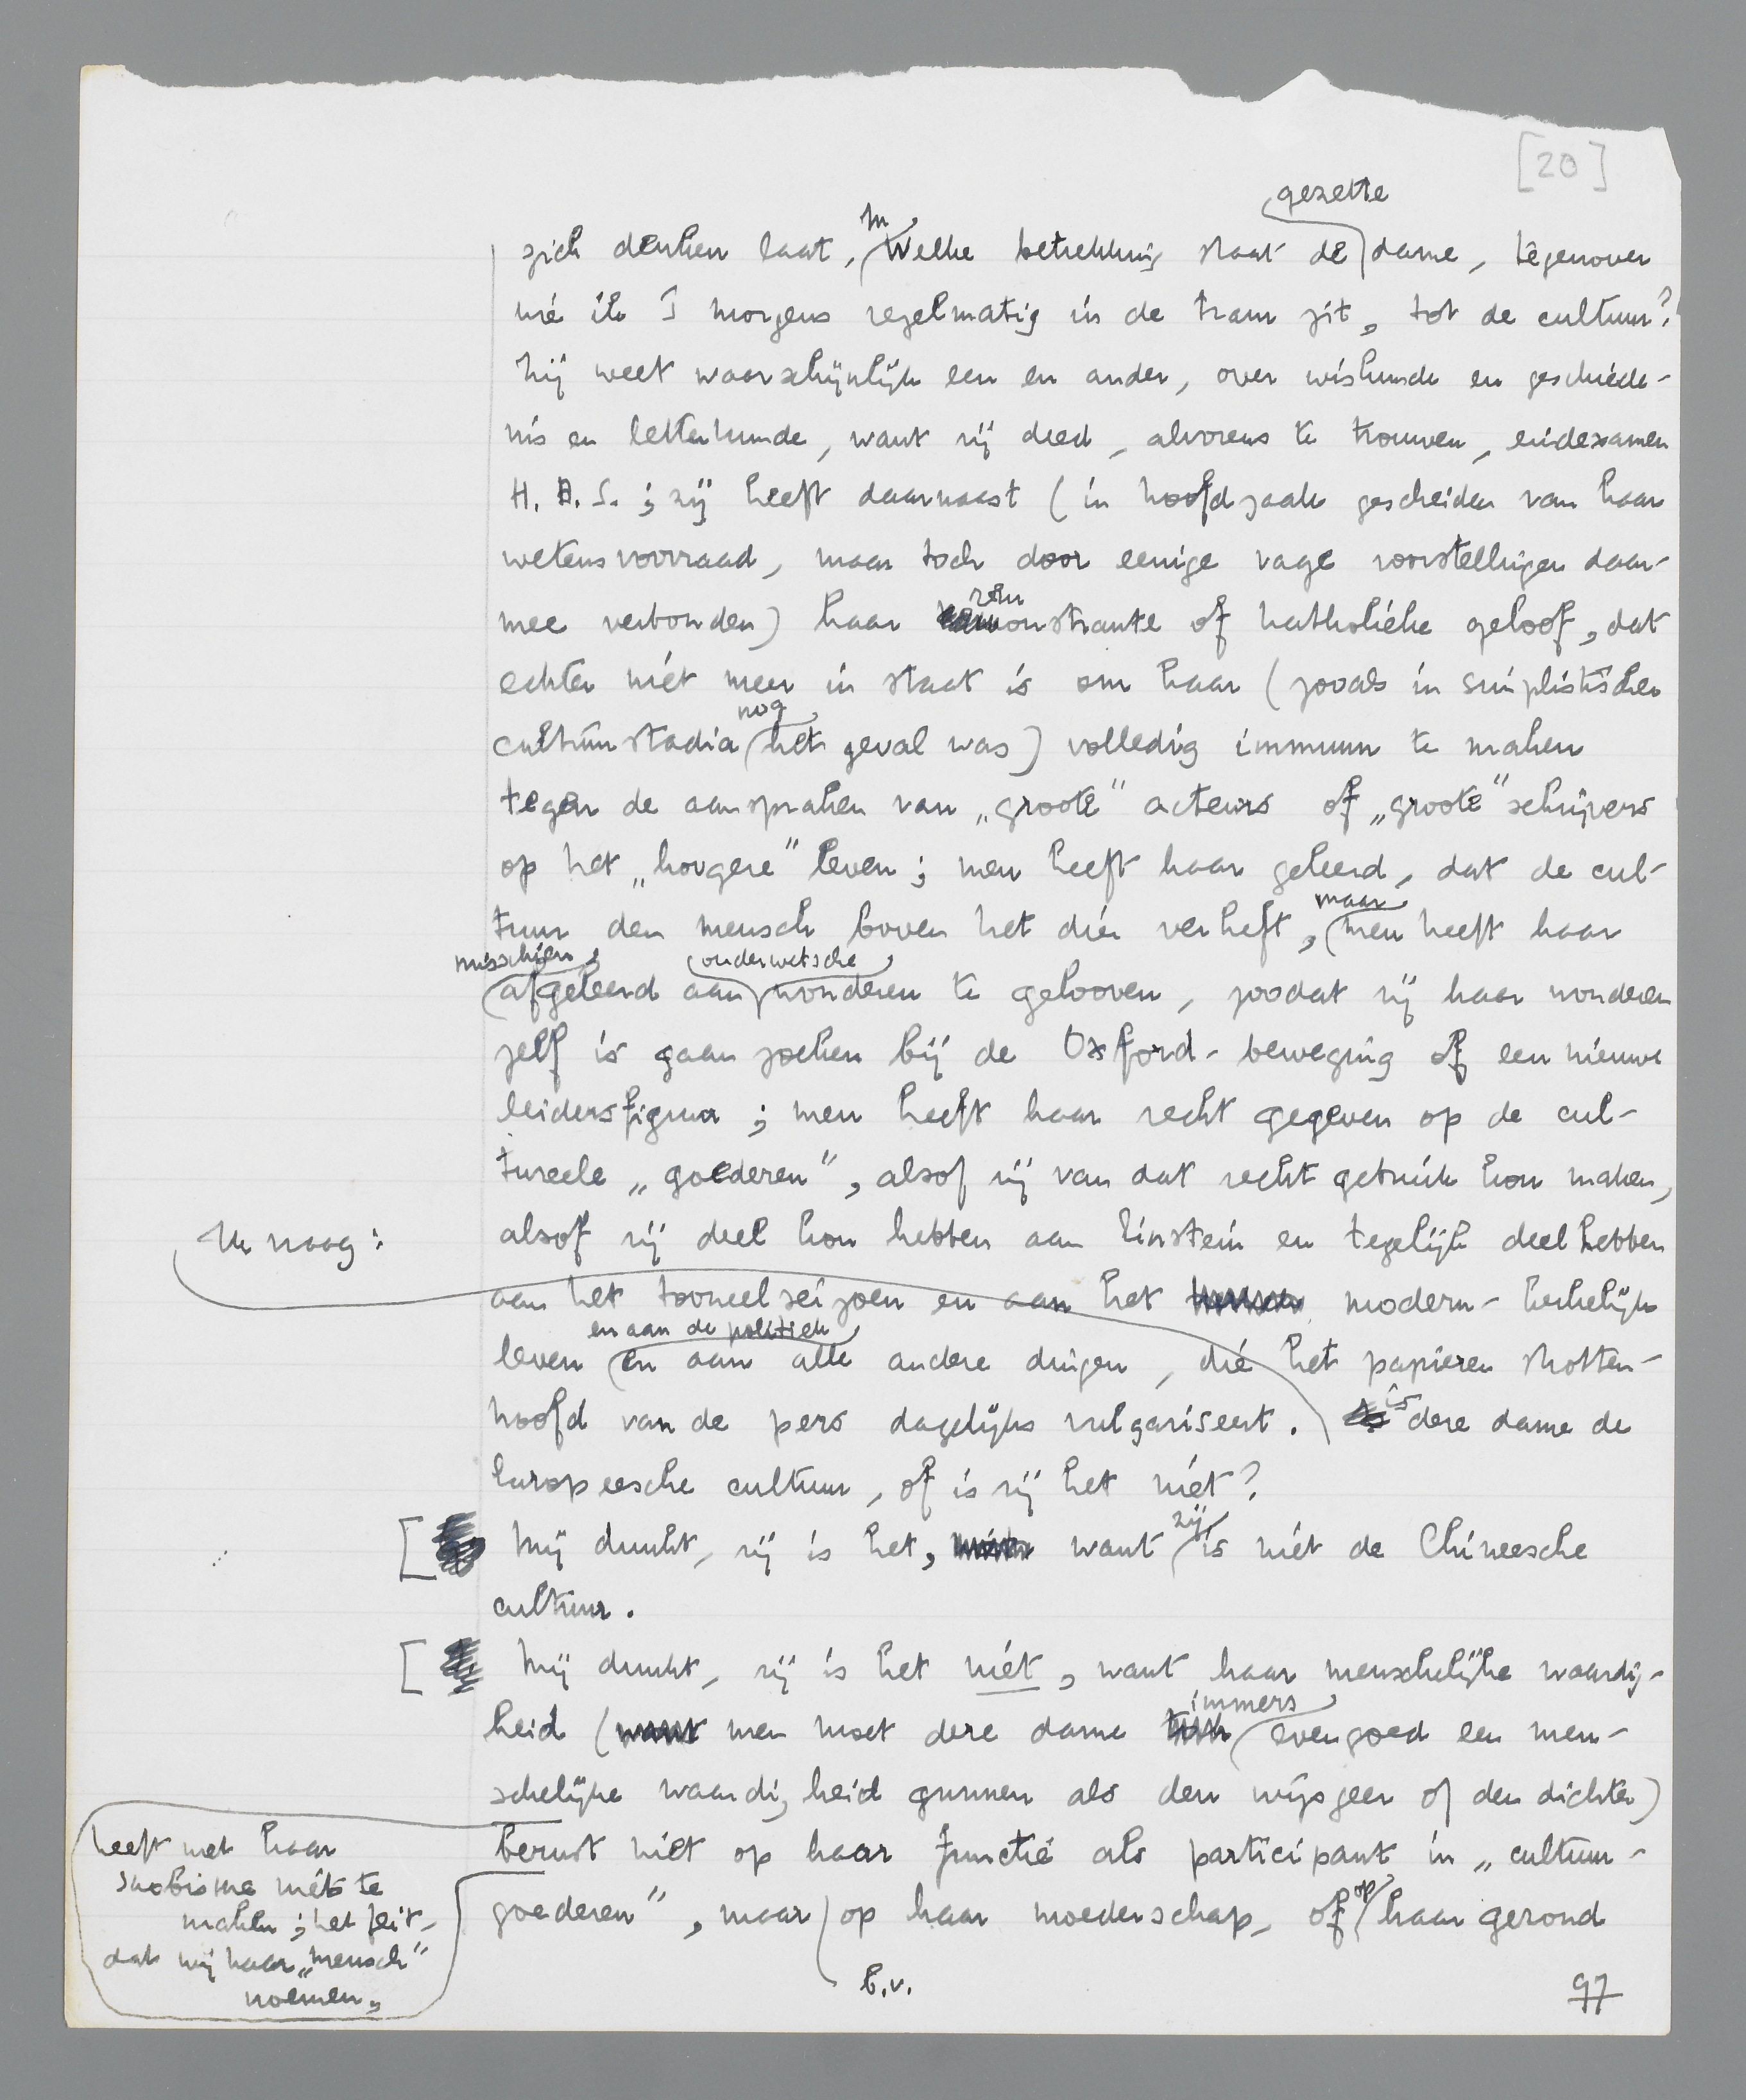 [20]
gezette
zich denken laat, In welke betrekking staat de dame, tegenover
wie ik 's morgens regelmatig in de tram zit, tot de cultuur?
Zij weet waarschijnlijk een en ander, over wiskunde en geschiede-
nis en letterkunde, want zij deed, alvorens te trouwen, eindexamen
H.B.S.; zij heeft daarnaast (in hoofdzaak gescheiden van haar
wetensvoorraad, maar toch door eenige vage voorstellingen daar-
mee verbonden) haar remonstrante of katholieke geloof, dat
echter niet meer in staat is om haar (zooals in simplistischer
nog
cultuurstadia het geval was) volledig immuun te maken
tegen de aanspraken van „groote" acteurs of „groote" schrijvers
op het „hoogere" leven; men heeft haar geleerd, dat de cul-
maar
tuur den mensch boven het dier verheft, men heeft haar
misschien ouderwetsche
afgeleerd aan wonderen te gelooven, zoodat zij haar wonderen
zelf is gaan zoeken bij de Oxford-beweging of een nieuwe
leidersfiguur; men heeft haar recht gegeven op de cul-
tureele „goederen", alsof zij van dat recht gebruik kon maken,
alsof zij deel kon hebben aan Einstein en tegelijk deel hebben
Nu vraag:
aan het tooneelseizoen en aan het modern-kerkelijk
en aan de politiek
leven en aan alle andere dingen, die het papieren schotten-
hoofd van de pers dagelijks vulgariseert. is deze dame de
Europeesche cultuur, of is zij het niet?
[ Mij dunkt, zij is het, want zij is niet de Chineesche
cultuur.
[ Mij dunkt, zij is het niet, want haar menschelijke waardig-
immers
heid (men moet deze dame evengoed een men-
schelijke waardigheid gunnen als den wijsgeer of den dichter)
berust niet op haar functie als participant in „cultuur-
goederen", maar op haar moederschap, of op haar gerond
heeft met haar
snobisme niets te
maken; het feit,
dat wij haar „mensch"
noemen,
b.v.
97